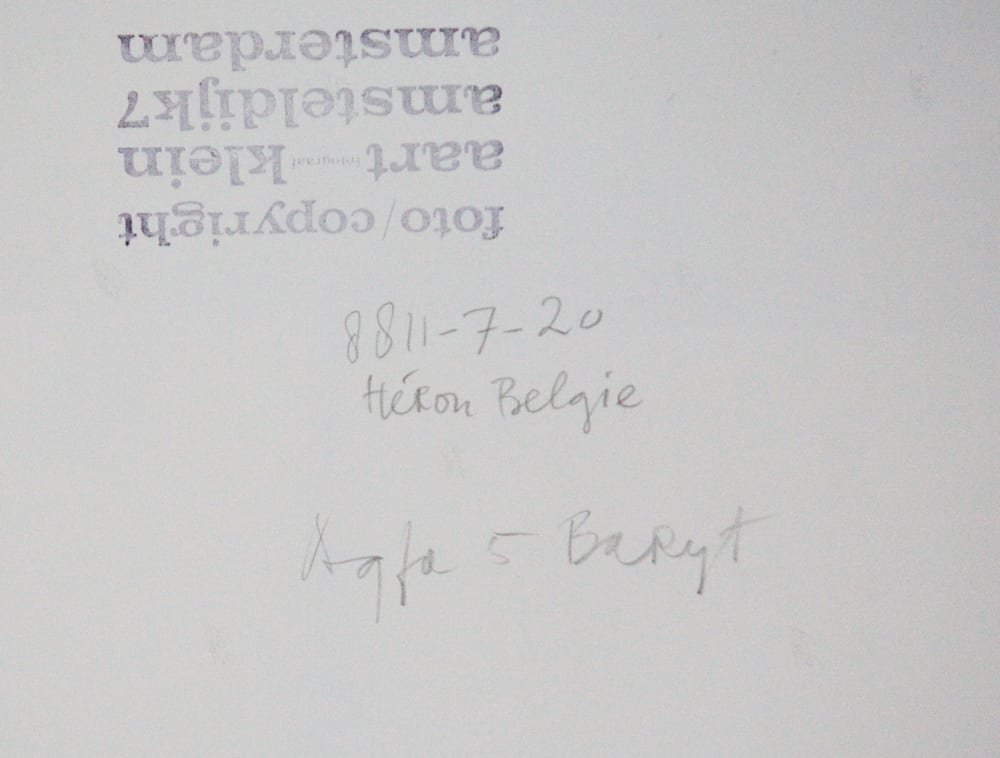 foto/copyright
aart fotograaf klein
amsteldijk 7
amsterdam
8811-7-20
Héron Belgie
Agfa 5 Baryt